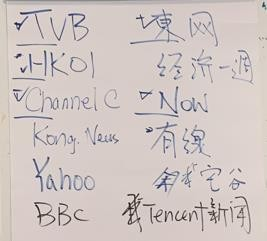 TVB
HK01
Channel C
Kong. News
Yahoo
BBC
東网
经济一週
Now
有線
宅谷
Tencent新闻